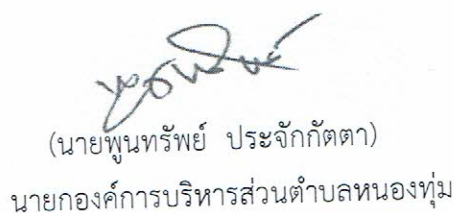 (นายพูนทรัพย์ ประจักกัตตา)
นายกองค์การบริหารส่วนตำบลหนองทุ่ม